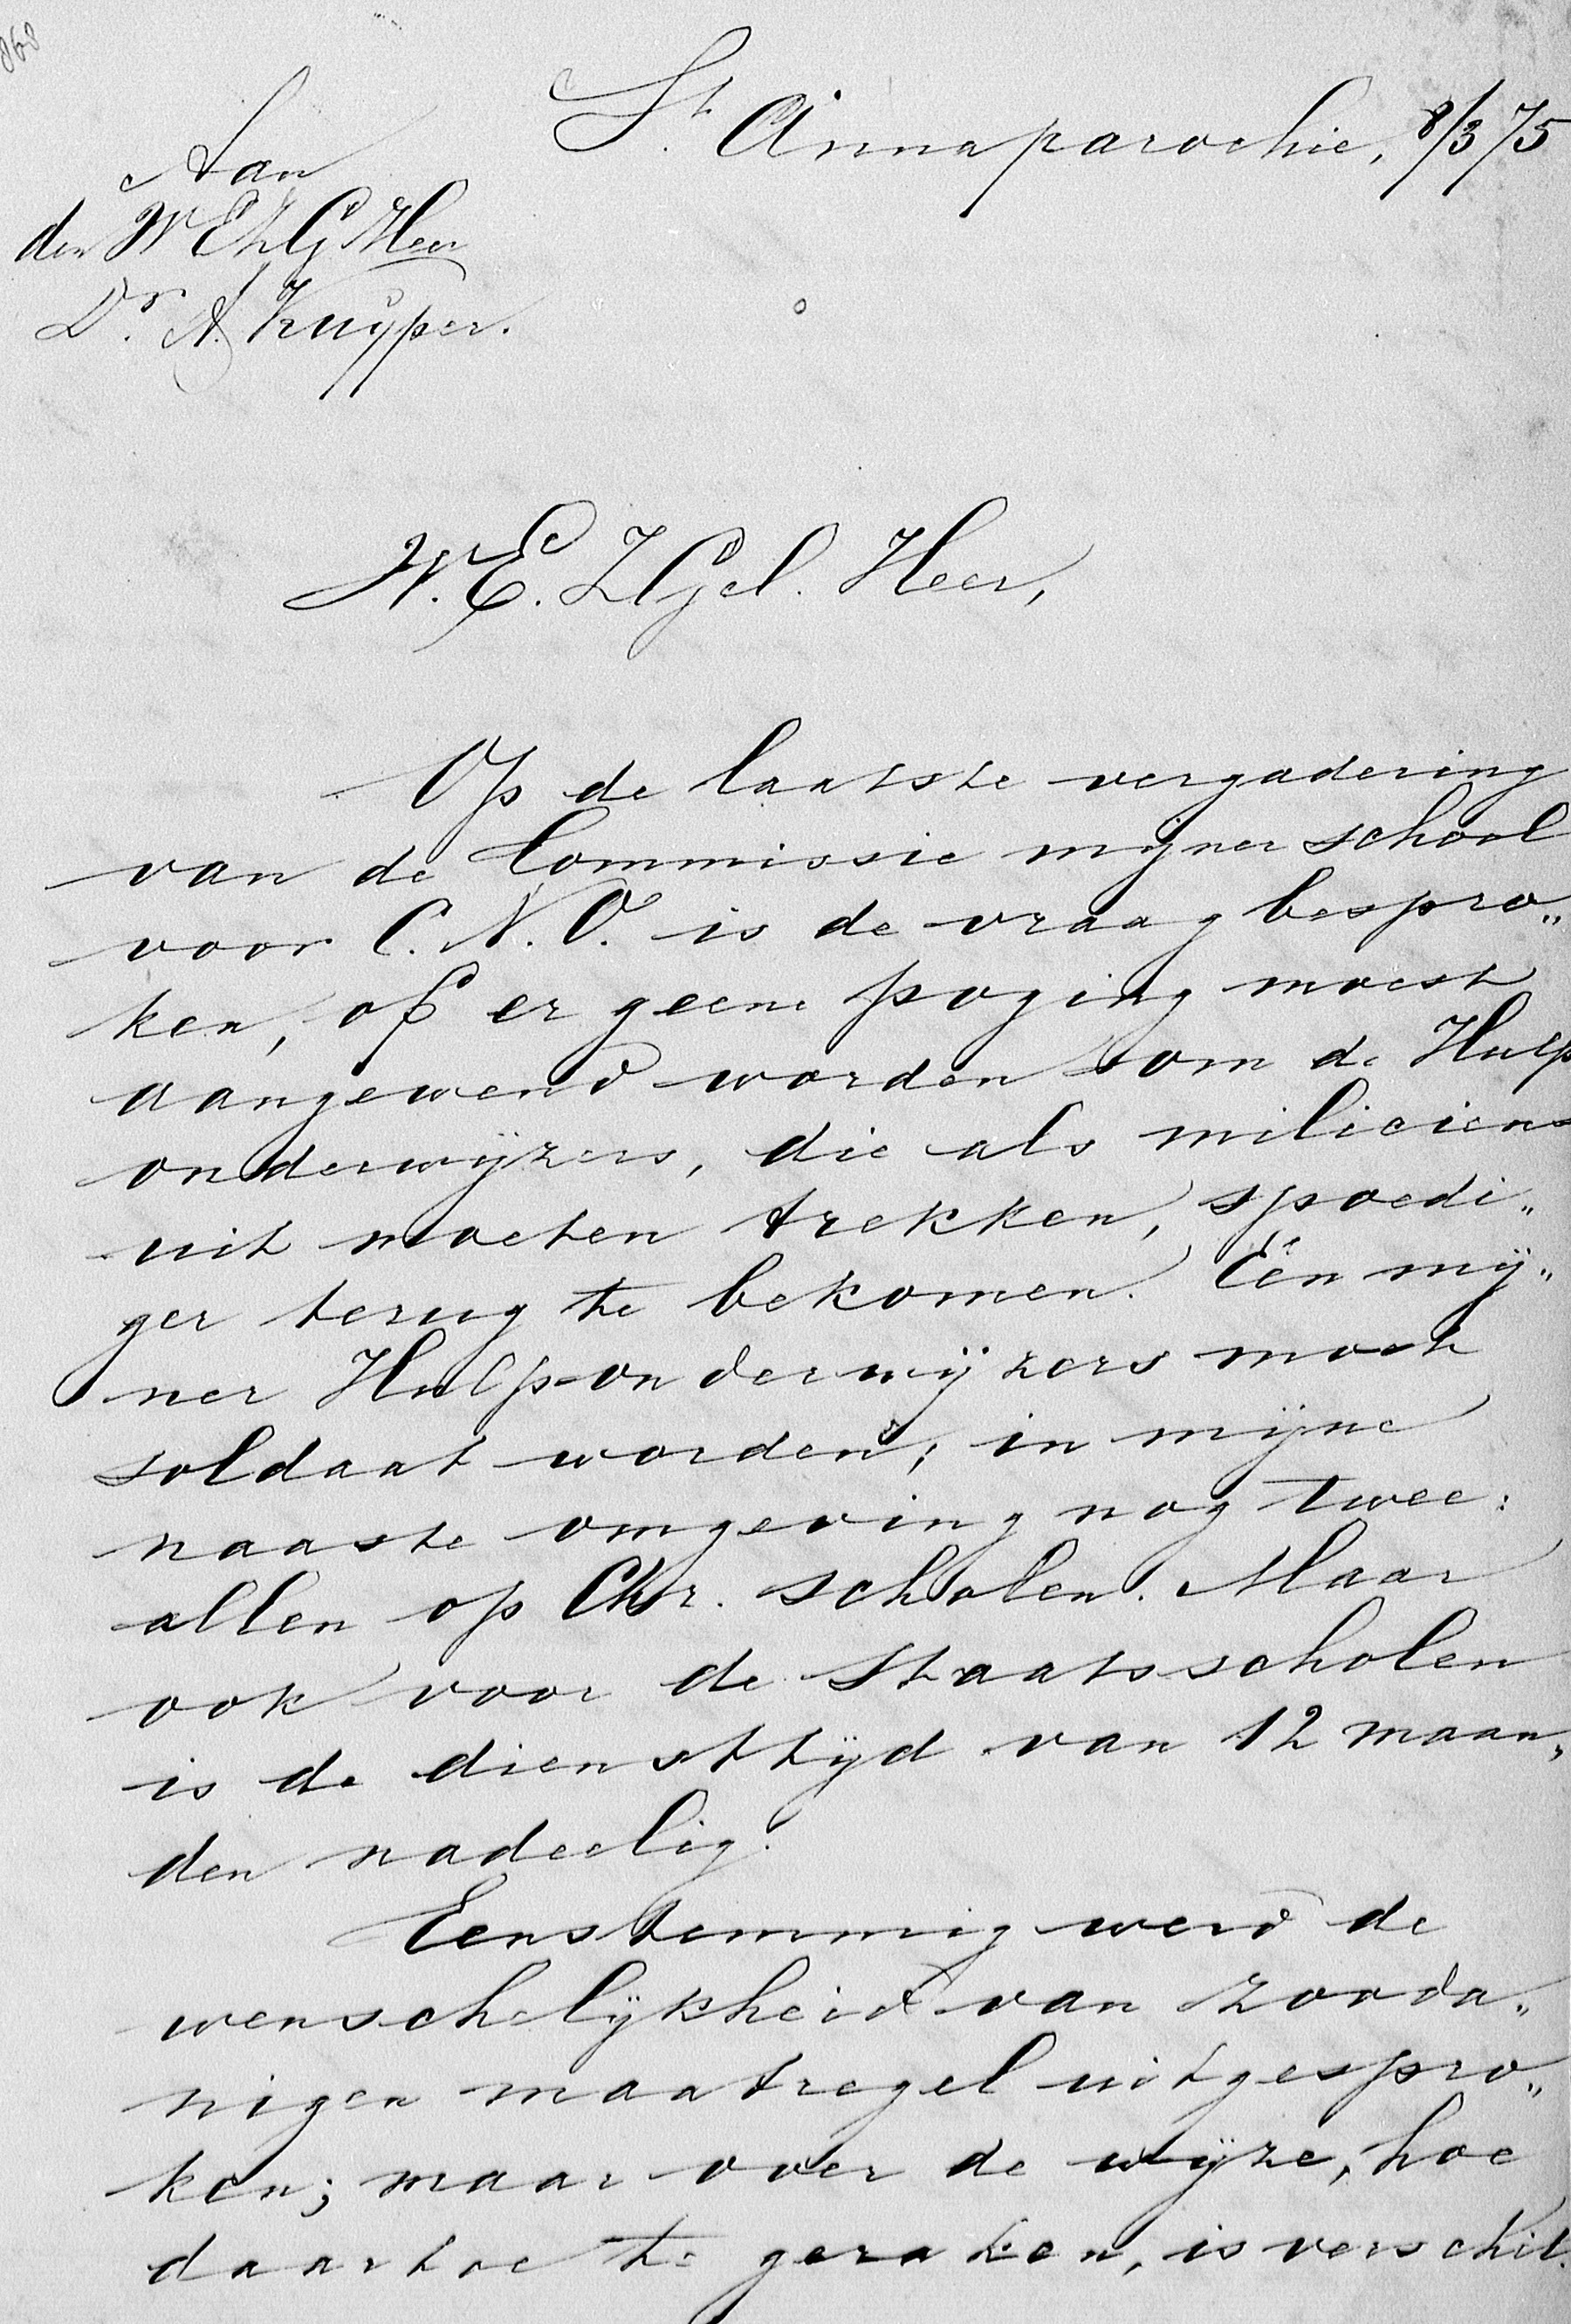 868
St. Annaparochie, 8/3 75
Aan
den WEZG Heer
Dr. A. Kuyper.
W. E. ZGel. Heer,
Op de laatste vergadering
van de Commissie mijner school
voor C. N. O. is de vraag bespro„
ken, of er geene poging moest
aangewend worden om de Hulp
onderwijzers, die als miliciens
uit moeten trekken, spoedi„
ger terug te bekomen. Eén mij„
ner Hulp-onderwijzers moet
soldaat worden; in mijne
naaste omgeving nog twee:
allen op Chr. scholen. Maar
ook voor de Staatsscholen
is de diensttijd van 12 maan„
den nadeelig.
Eenstemmig werd de
wenschelijkheid van zooda„
nigen maatregel uitgespro„
ken; maar over de wijze, hoe
daartoe te geraken, is verschil